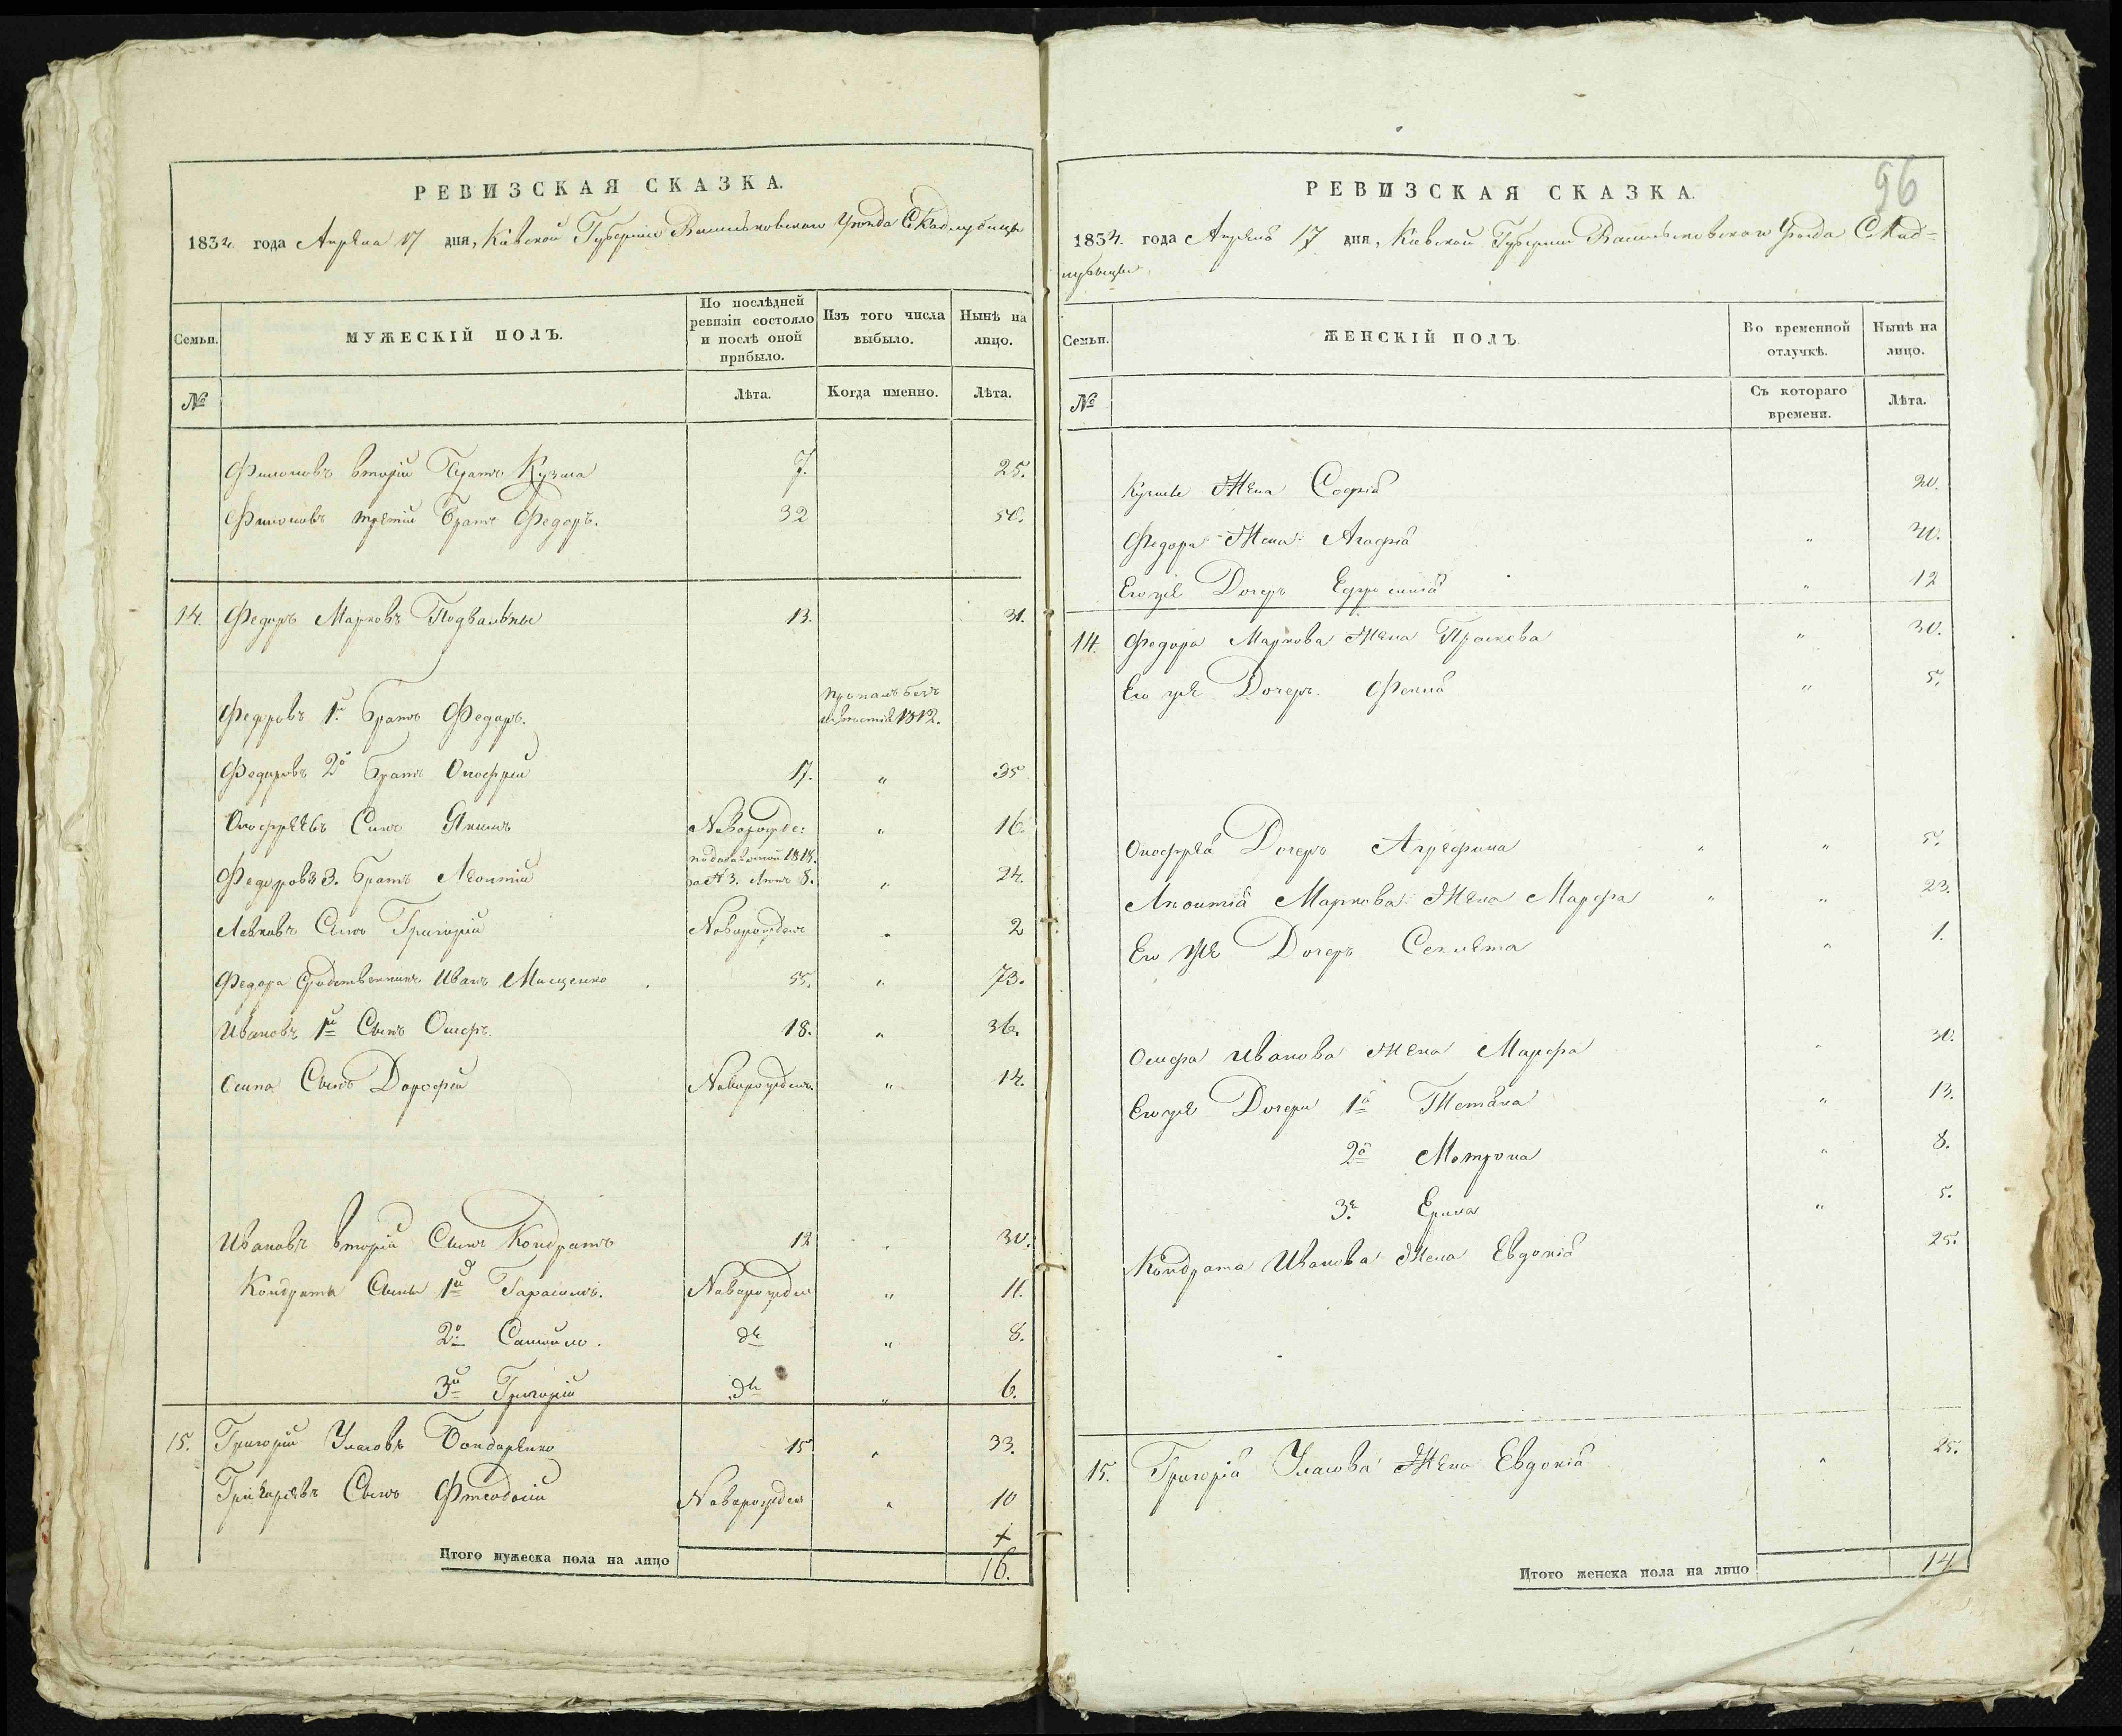 РЕВИЗСКАЯ СКАЗКА.
1834. года Апреля 17 дня, Киевской Губернии Васильковского Уезда С. Кадлубицы
Семьи.
МУЖЕСКІЙ ПОЛЪ.
По послѣдней ревизіи состояло и послѣ оной прибыло.
Изъ того числа выбыло.
Нынѣ на лицо.
№
Лѣта.
Когда именно.
Лѣта.
Филоновъ вторій Братъ Кузма 7. 25.
Филоновъ третій Братъ Федоръ. 32 50.
14. Федоръ Марковъ Подвальны 13. 31.
Федоровъ 1й Братъ Федоръ. пропалъ безъ извѣстія 1812.
Федоровъ 2й Братъ Онофрій 17. " 35
Онофрѣевъ Синъ Якимъ Новорожде: " 16.
Федоровъ 3. Братъ Леонтій 1818. 8. " 24.
Синъ Григорій Новорожден " 2
Федора Сродственникъ Иванъ Мищенко 55. " 73.
Ивановъ 1й Сынъ Осифъ. 18. " 36.
Осипа Сынъ Дорофій Новорожден " 14.
Ивановъ вторій Сынъ Кондратъ 12 " 30.
Кондрата Сыны 1й Гарасимъ. Новорожден " 11.
2й Самойло. дѣ " 8.
3й Григорій дѣ " 6.
15. Григорій Уласовъ Бондаренко 15 " 33.
Григорѣевъ Сынъ Фтеодосій Новорожден " 10
+
Итого мужеска пола на лицо 16.
96
РЕВИЗСКАЯ СКАЗКА.
1834. года Апрѣля 17 дня, Киевской Губернии Васильковского Уезда С. Кад=
лубицы
Семьи.
ЖЕНСКІЙ ПОЛЪ
Во временной отлучкѣ.
Нынѣ на лицо.
№
Съ котораго времени.
Лѣта.
Кузмы Жена Софія 20.
Федора Жена Агафія " 40.
Его же Дочерь Ефросинія " 12
14. Федора Маркова Жена Праскева " 30.
Его же Дочерь Фекла " 5.
Онофрея Дочерь Агрефина " " 5.
Маркова Жена Марфа " " 23.
Его же Дочерь Секлета " 1.
Осифа Иванова Жена Марфа " 30.
Его же Дочери 1я Тетяна " 13.
2я Мотрона " 8.
3я Ерина " 5.
Кондрата Иванова Жена Евдокія 25.
15. Григорія Уласова Жена Евдокія " 25.
Итого женска пола на лицо 14